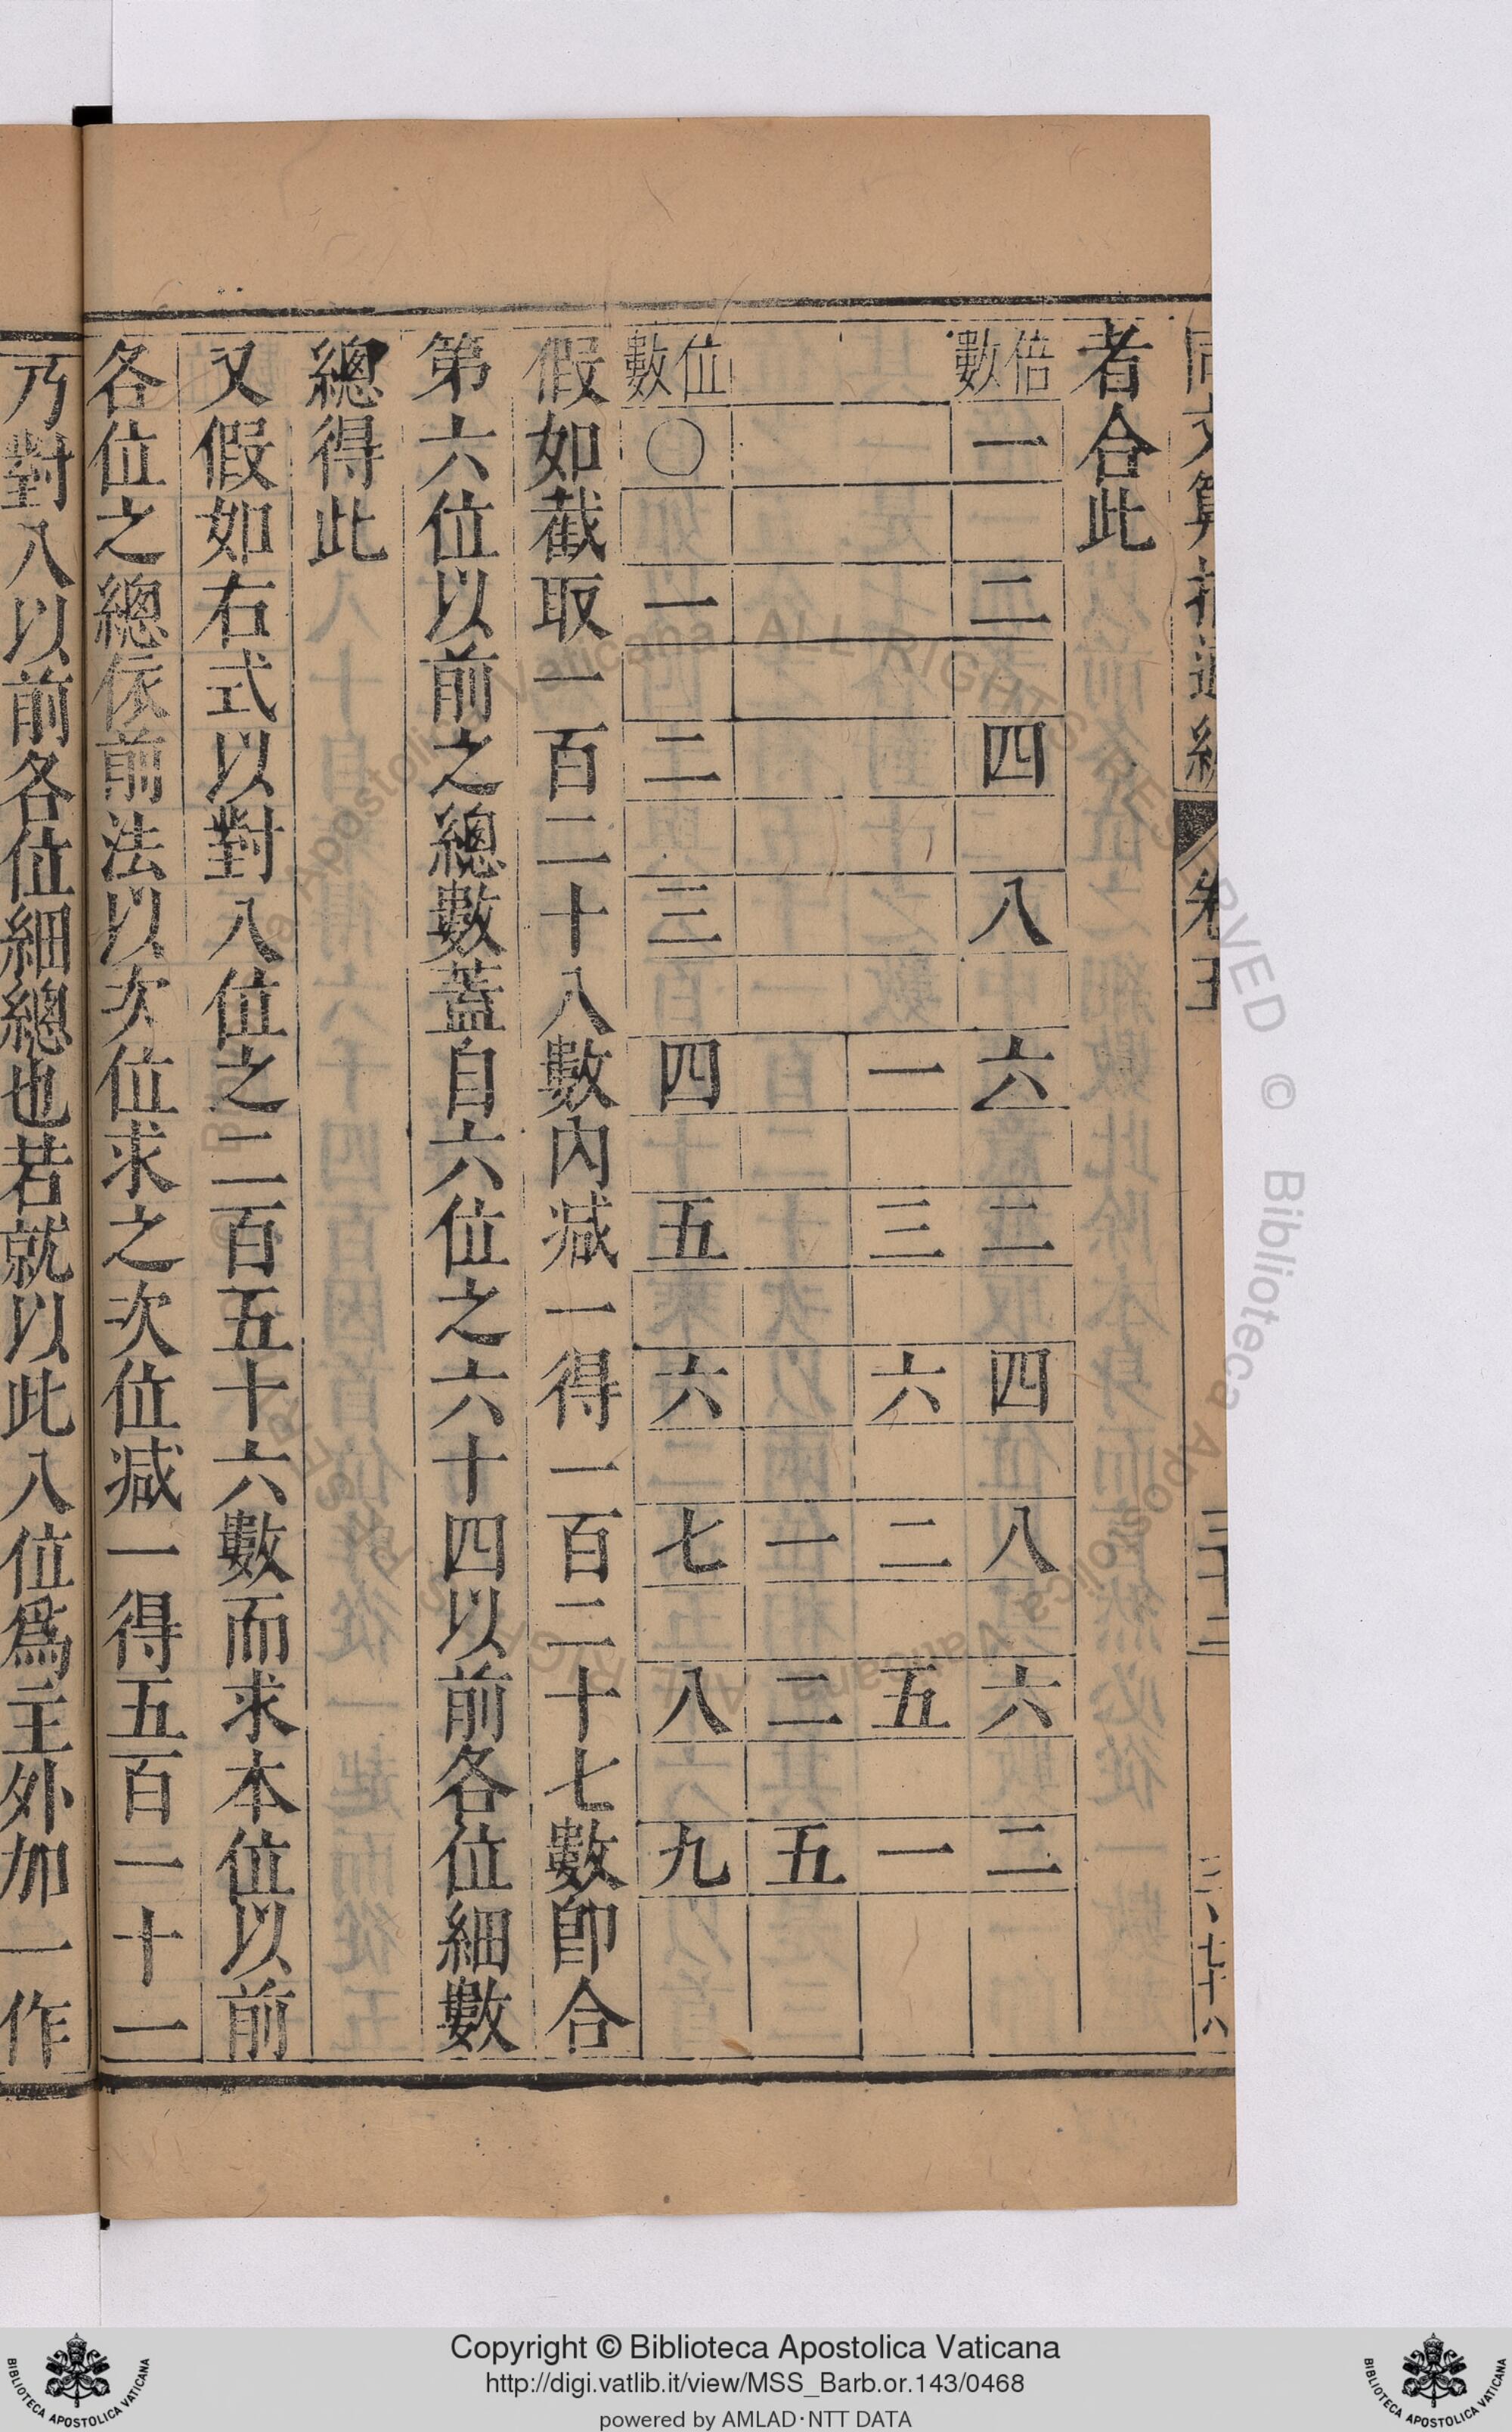 者合此
倍數 一 二 四 八 六 二 四 八 六 二
一 三 六 二 五 一
一 二 五
位數 〇 一 二 三 四 五 六 七 八 九
假如截取一百二十八數內減一得一百二十七數卽合
第六位以前之總數蓋自六位之六十四以前各位細數
總得此
又假如右式以對八位之二百五十六數而求本位以前
各位之總依前法以次位求之次位減一得五百一十一
乃對八以前各位細總也若就以此八位爲主外加一作
Copyright © Biblioteca Apostolica Vaticana
http://digi.vatlib.it/view/MSS_Barb.or.143/0468
powered by AMLAD·NTT DATA
BIBLIOTECA APOSTOLICA VATICANA
BIBLIOTECA APOSTOLICA VATICANA